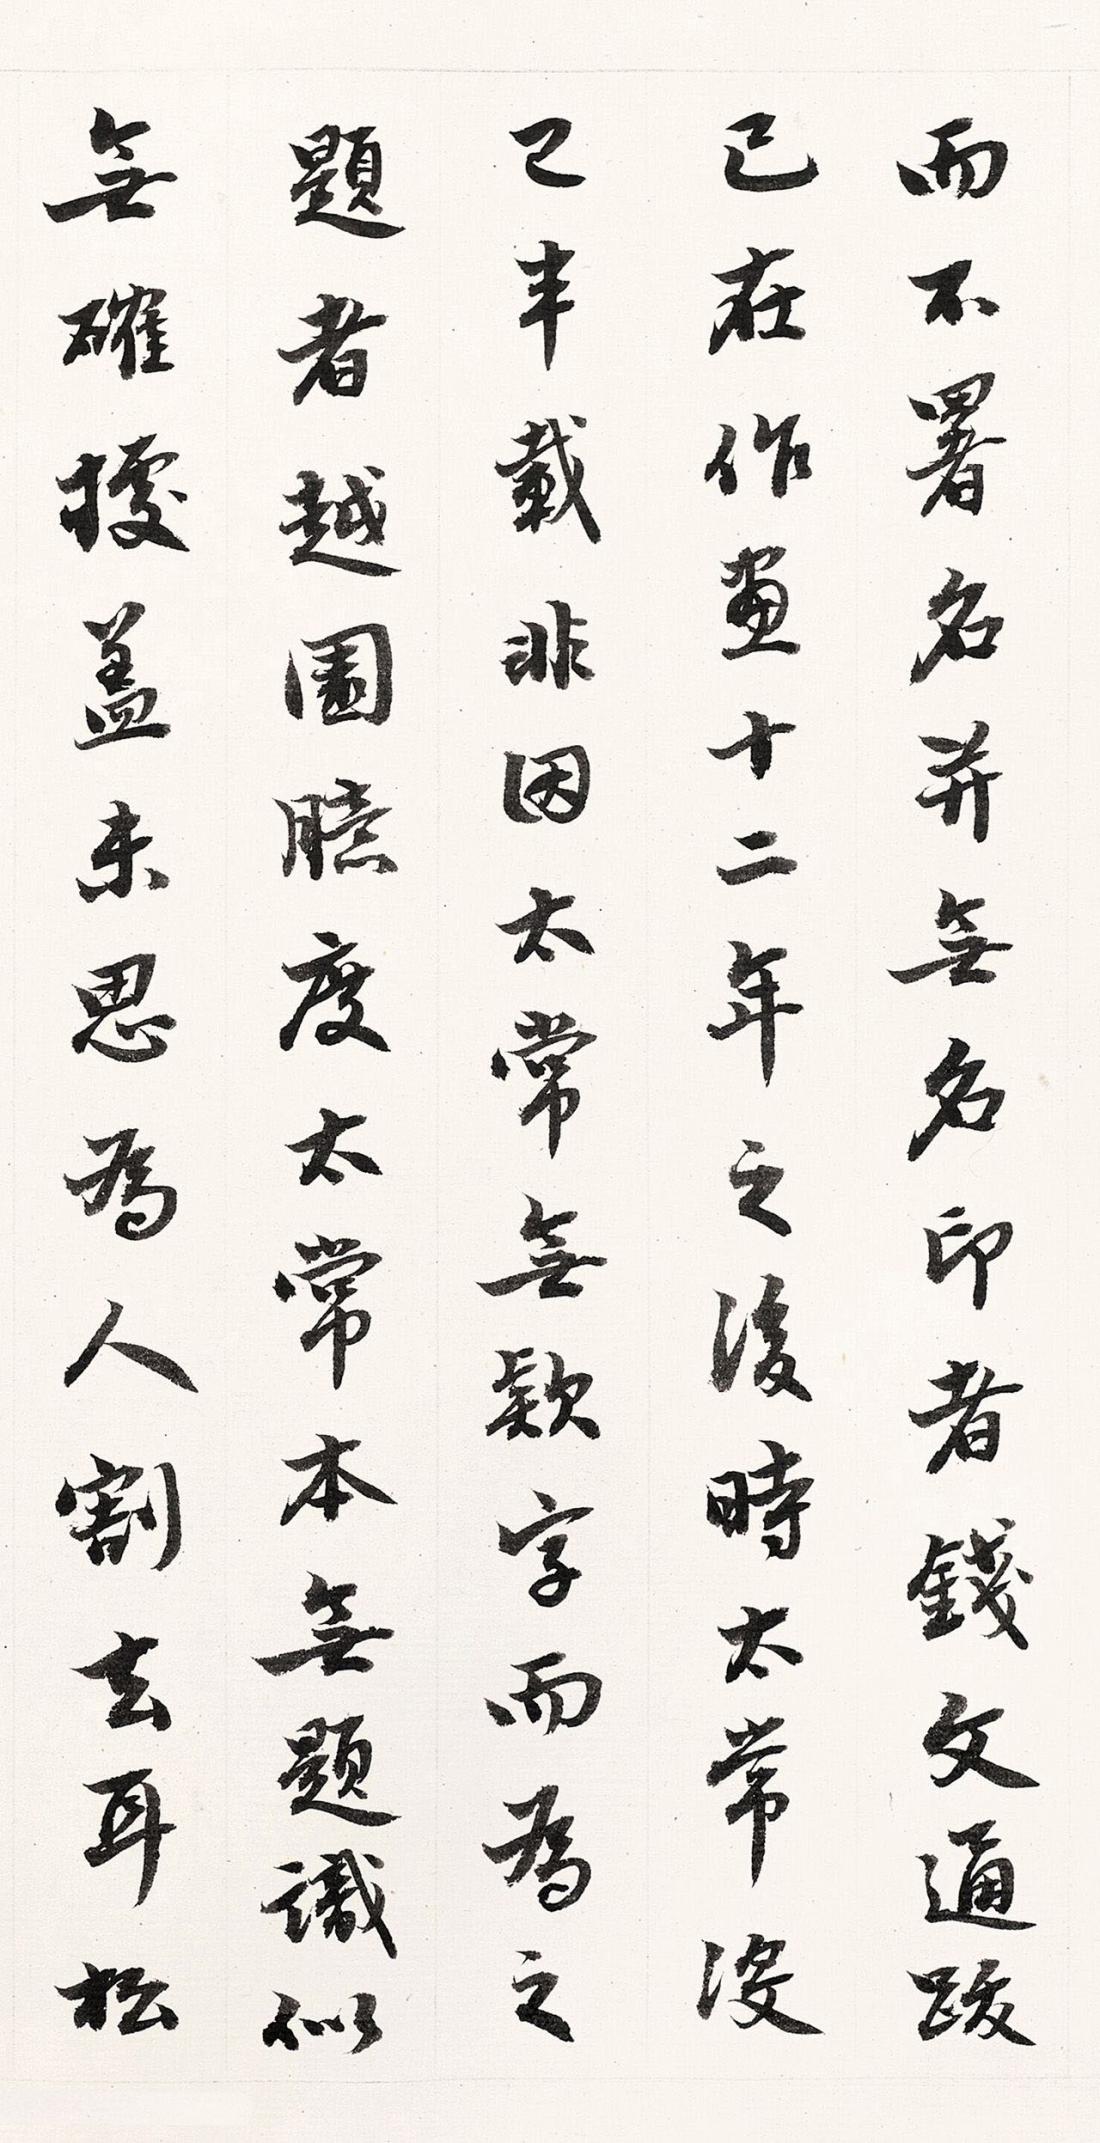 而不署名并無名印者錢文通跋
已在作畫十二年之後時太常沒
已半載非因太常無款字而為之
題者越園臆度太常本無題識似
無確據蓋未思為人割去耳松